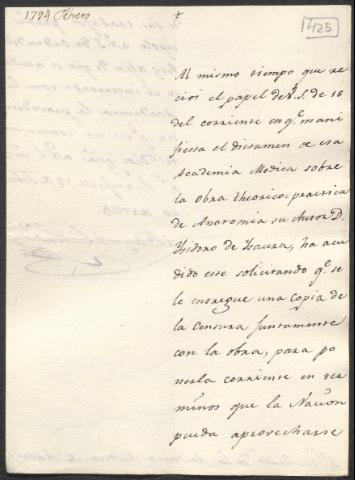 1789 Febrero
1425
Al mismo tiempo que re
civi el papel de V.S. de 16
del corriente en q.e mani
fiesta el dictamen de esa
Academia Medica sobre
la obra theorico-practica
de Anatomia su Autor D.
Ysidoro de Isaura, ha acu
dido este solicitando q.e se
le entregue una copia de
la Censura juntamente
con la obra, para po
nerla corriente en ter
minos que la Nacion
pueda aprovecharse